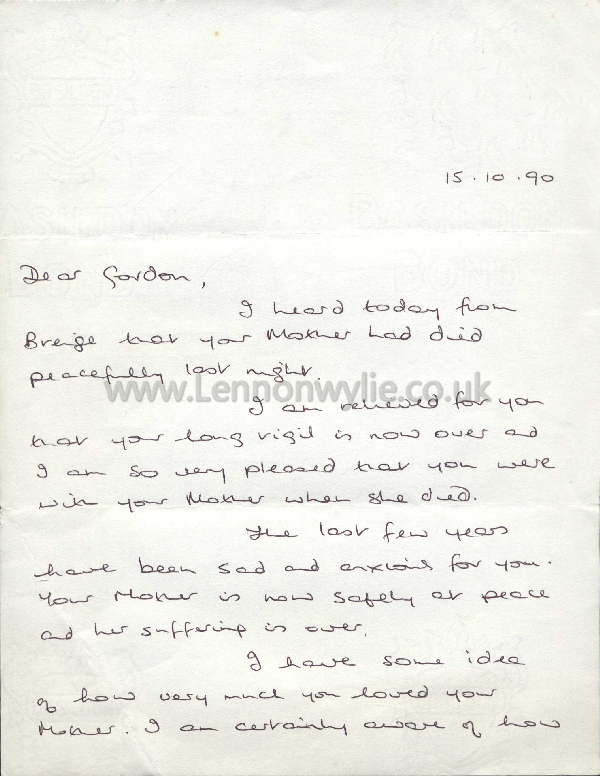 15.10.90
Dear Gordon,
I heard today from
Breige that your Mother had died
peacefully last night.
www.Lennonwylie.co.uk
I am relieved for you
that your long vigil is now over and
I am so very pleased that you were
with your Mother when she died.
The last few years
have been sad and anxious for you.
Your Mother is now safely at peace
and her suffering is over.
I have some idea
of how very much you loved your
Mother. I am certainly aware of how